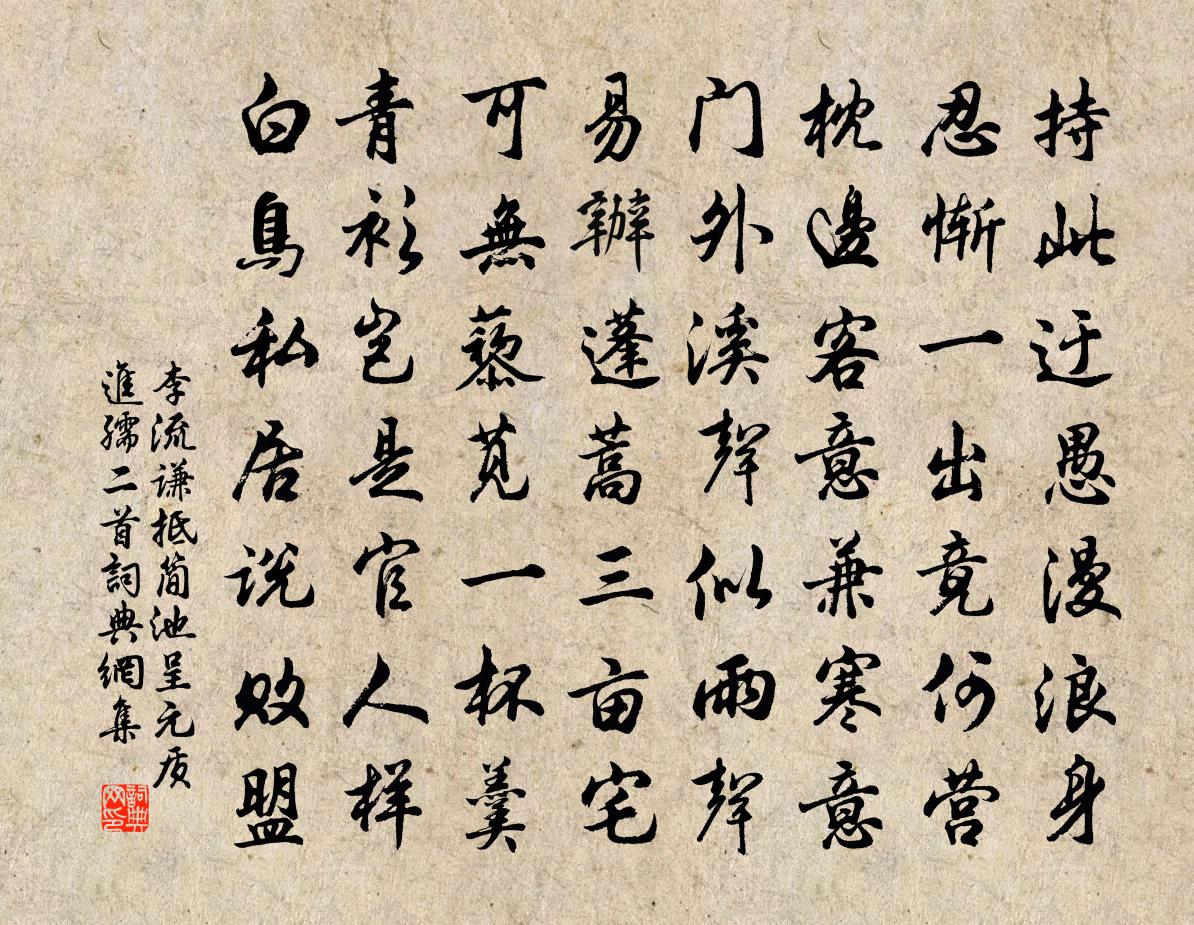 持此迂愚漫浪身
忍惭一出竟何营
枕邊客意兼寒意
门外溪聲似雨聲
易辦蓬蒿三亩宅
可無藜苋一杯羹
青衫岂是官人样
白鳥私居说败盟
李流谦抵简池呈元质
進孺二首詞典網集
詞典
网印